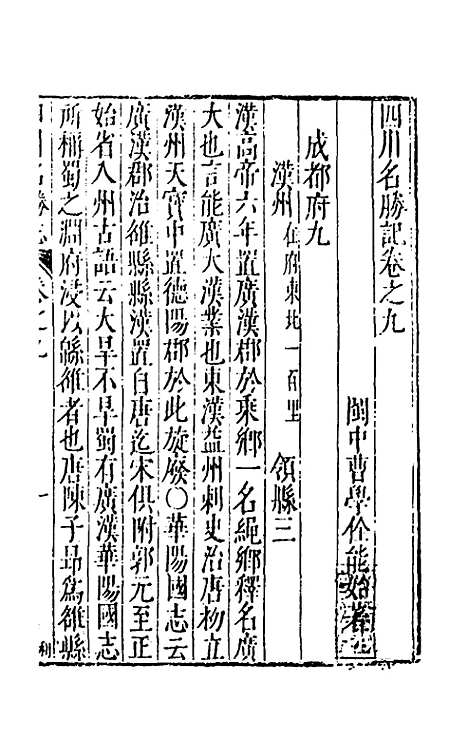 四川名勝記卷之九
閩中曹學佺能始著
成都府九
漢州 在府東北一百里 領縣三
漢高帝六年置廣漢郡於乘鄉一名繩鄉釋名廣
大也言能廣大漢業也東漢益州刺史治唐初立
漢州天寶中置德陽郡於此旋廢〇華陽國志云
廣漢郡治雒縣縣漢置自唐迄宋俱附郭元至正
始省入州古語云大旱不旱蜀有廣漢華陽國志
所稱蜀之淵府浸以緜雒者也唐陳子昻爲雒縣
四川名勝志 卷之九 一